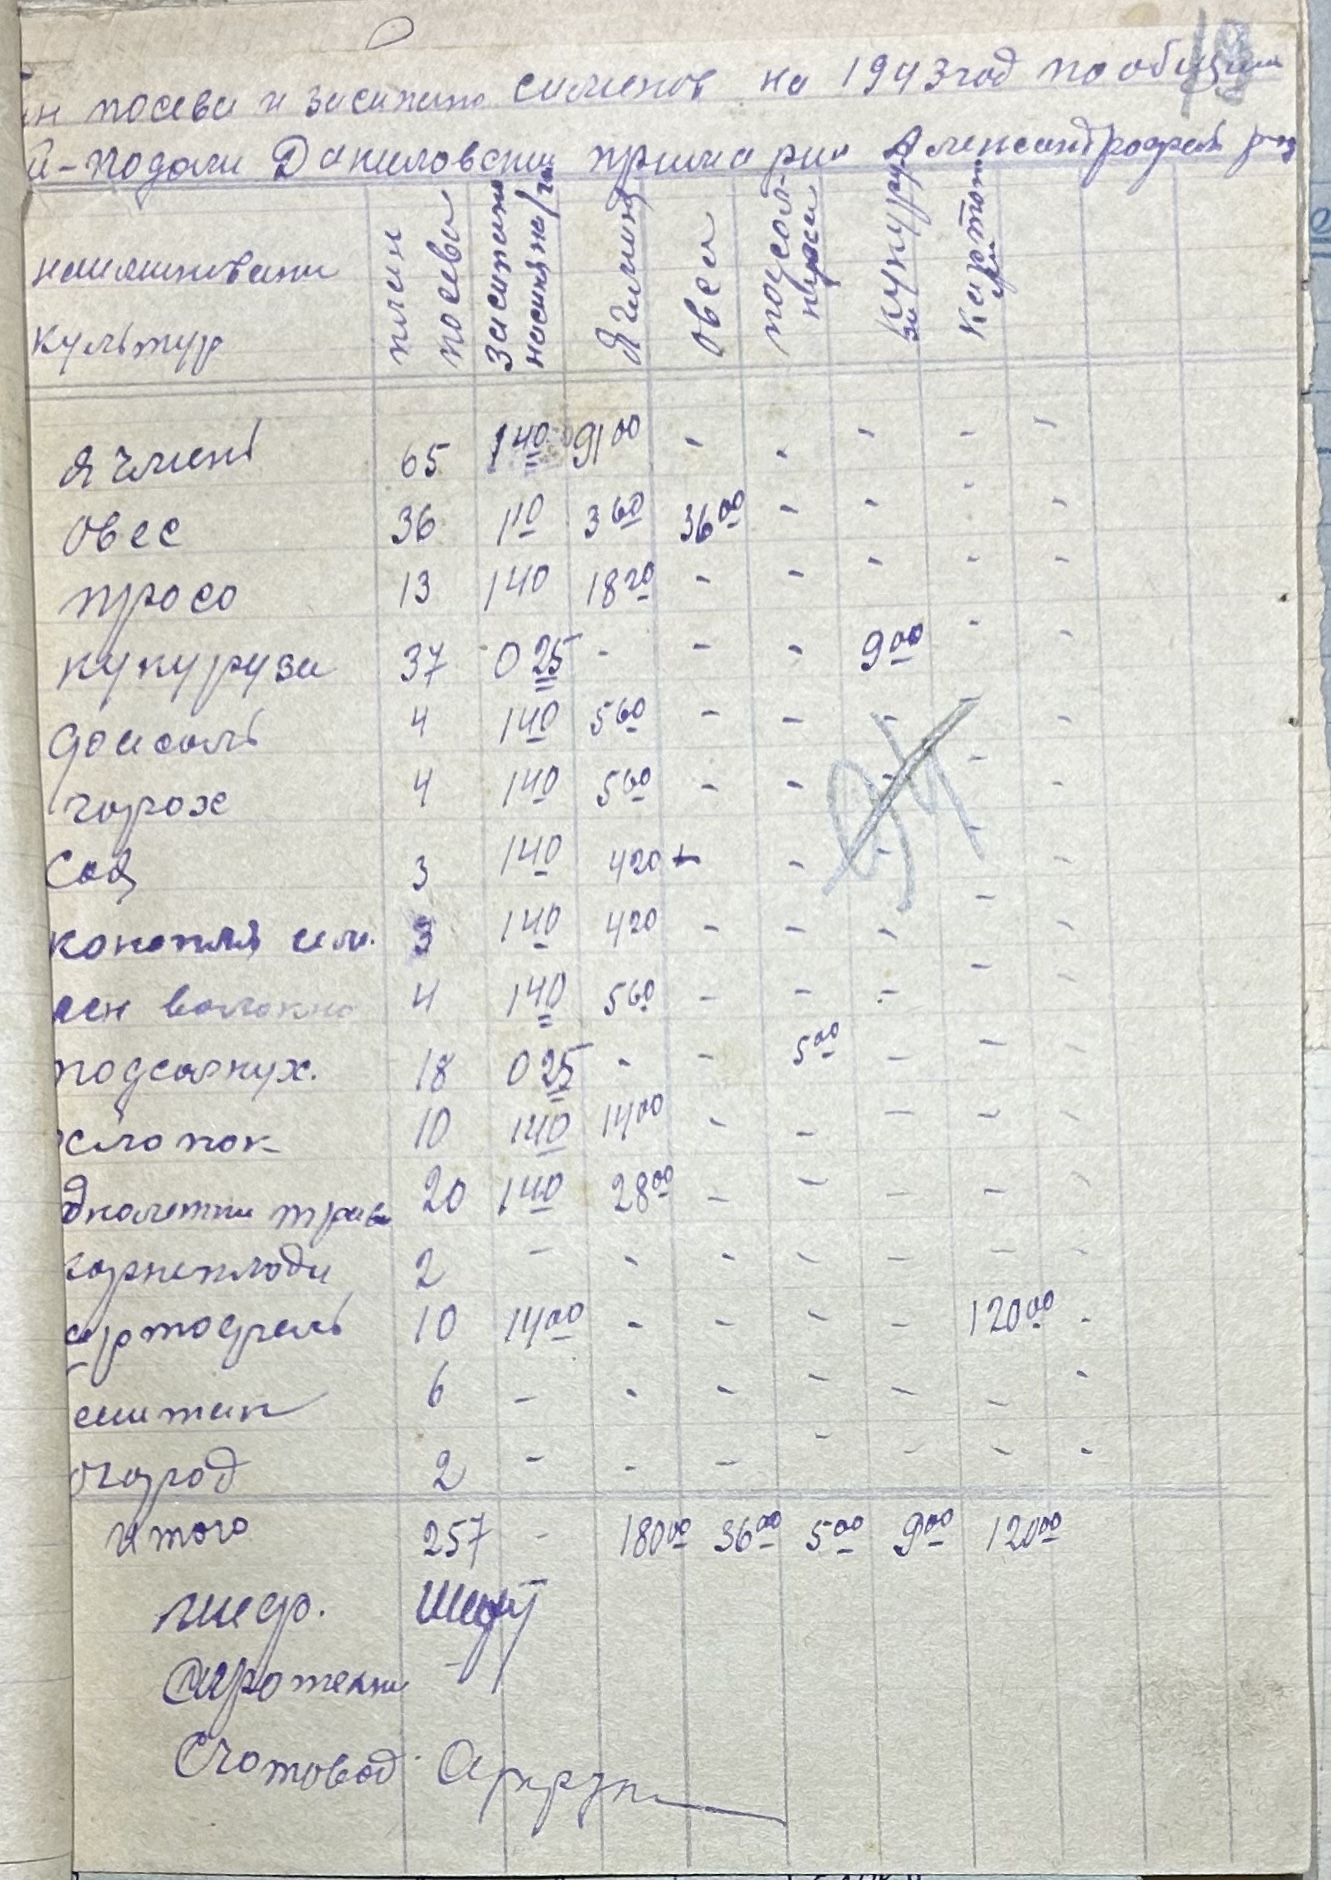 н посева и засипано сименов на 1943 год по общине
й-Подоли Даниловской примарии Александрофка р-на
наименовани культур
план посева
ячмин
овса
подсол-нухи
кукуру за
картоп
ячмень 65 140 9100 - - - - -
овес 36 110 360 3600 - - - -
просо 13 140 1820 - - - - -
кукуруза 37 025 - - - 900 - -
фасоль 4 140 560 - - - - -
горох 4 140 560 - - - - -
соя 3 140 420 - - - -
конопля сем. 3 140 420 - - - - -
лен волокно 4 140 560 - - - - -
подсолнух. 18 025 - - 500 - - -
хлопок 10 140 1400 - - - - -
днолетни трави 20 140 2800 - - - - -
корнеплоди 2 - - - - - - -
артофель 10 1400 - - - - 12000 -
6 - - - - - - -
огород 2 - - - - - - -
итого 257 - 18000 3600 500 900 12000
шеф.
Счотовод